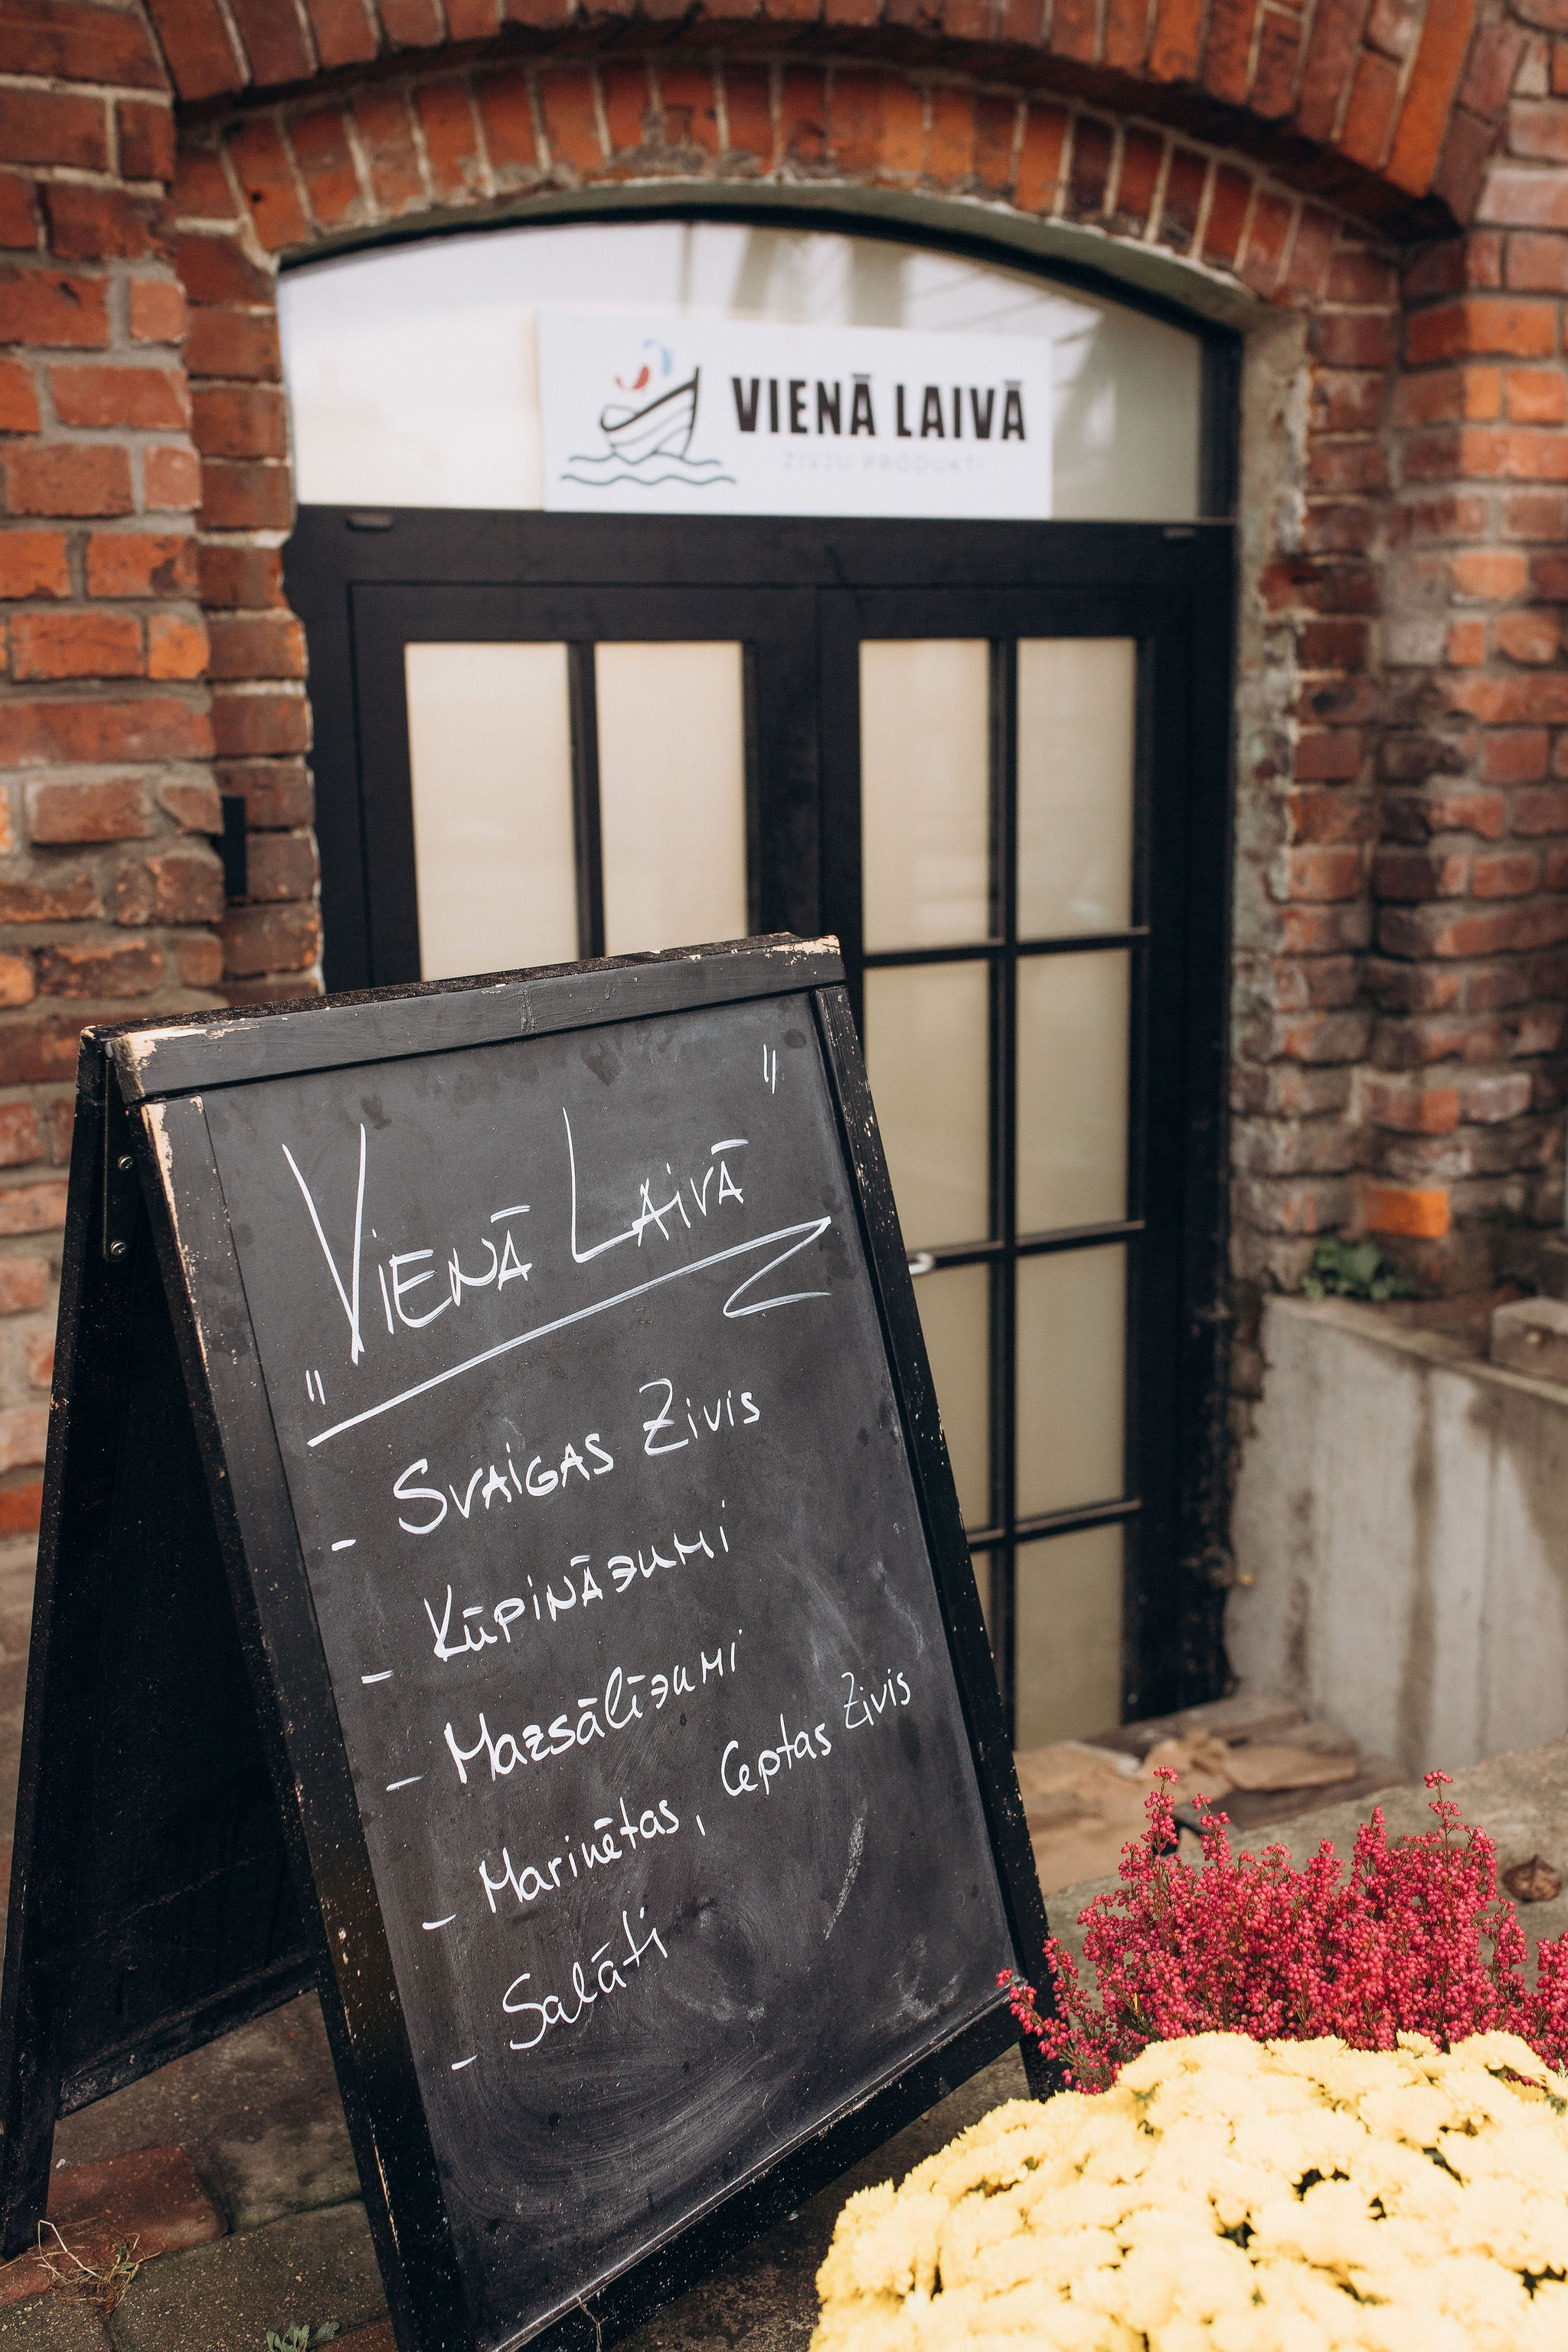 VIENĀ LAIVĀ
ZIVJU PRODUKTI
"Vienā Laivā"
- Svaigas Zivis
- Kūpinājumi
- Mazsālījumi
- Marinētas, Ceptas Zivis
- Salāti